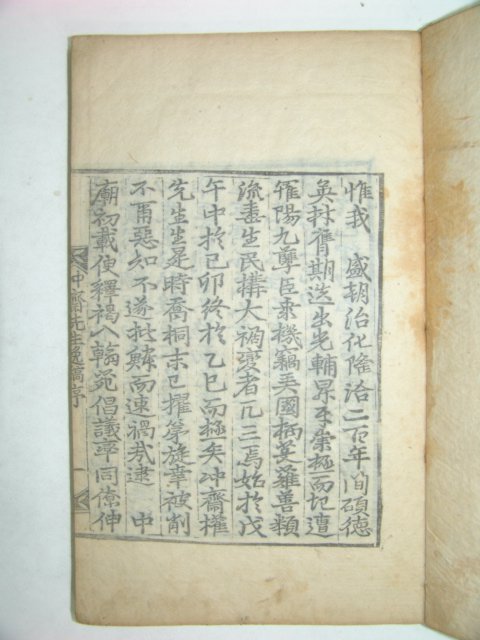 惟我 盛朝治化隆洽二百年間碩德
英材膺期迭出光輔昇平崇極而圮遭
罹陽九孼臣乘機竊弄國柄芟薙善類
流毒生民搆大禍變者凡三焉始於戊
午中於己卯終於乙巳而極矣冲齋權
先生生是時喬桐末已擢第旋幸被削
不甭惡知不遂批鱗而速禍哉逮 中
廟初載使釋褐入翰苑倡議率同僚伸
冲齋先生逸稿序